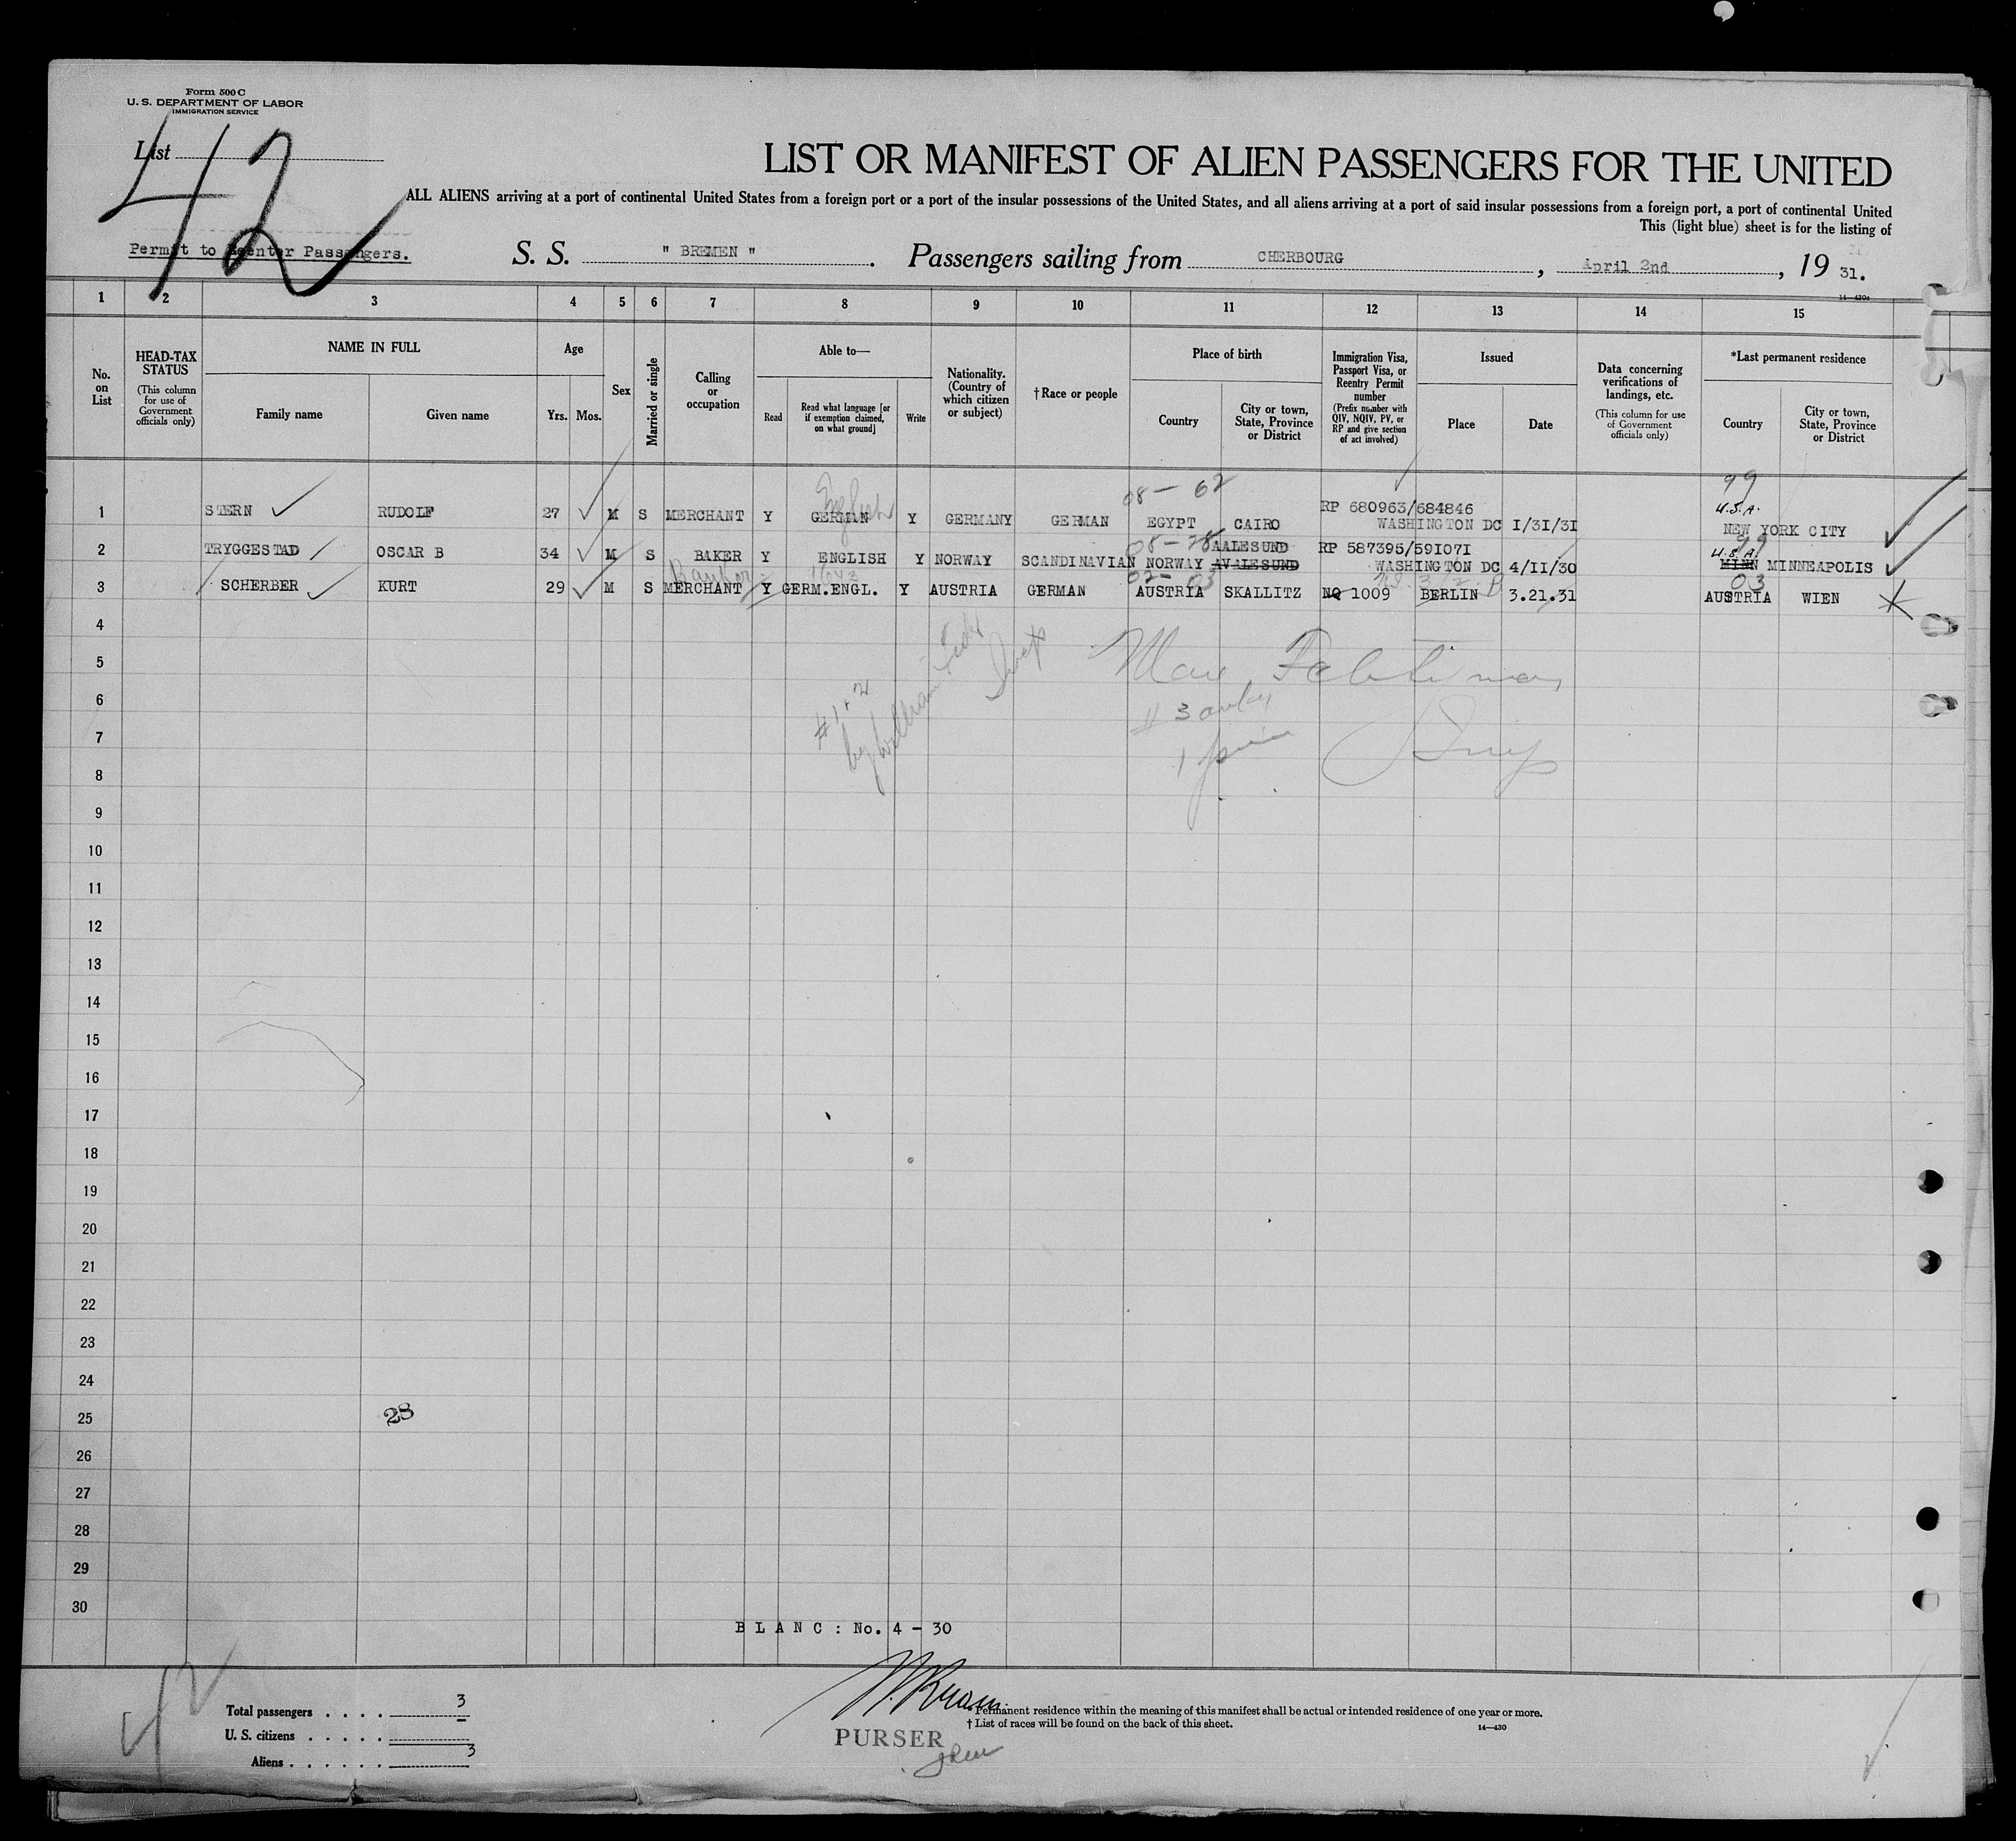 Form 500 C
U. S. DEPARTMENT OF LABOR
IMMIGRATION SERVICE
List
42
LIST OR MANIFEST OF ALIEN PASSENGERS FOR THE UNITED
ALL ALIENS arriving at a port of continental United States from a foreign port or a port of the insular possessions of the United States, and all aliens arriving at a port of said insular possessions from a foreign port, a port of continental United
This (light blue) sheet is for the listing of
Permit to Reenter Passengers. S. S. " BREMEN ". Passengers sailing from CHERBOURG, April 2nd, 19 31.
14—430a
1 2 3 4 5 6 7 8 9 10 11 12 13 14 15
No. on List
HEAD-TAX STATUS (This column for use of Government officials only)
NAME IN FULL Family name Given name
Age Yrs. Mos.
Sex
Married or single
Calling or occupation
Able to— Read Read what language [or if exemption claimed, on what ground] Write
Nationality. (Country of which citizen or subject)
† Race or people
Place of birth Country City or town, State, Province or District
Immigration Visa, Passport Visa, or Reentry Permit number (Prefix number with QIV, NQIV, PV, or RP and give section of act involved)
Issued Place Date
Data concerning verifications of landings, etc. (This column for use of Government officials only)
*Last permanent residence Country City or town, State, Province or District
English 08 — 62 99
1 STERN RUDOLF 27 M S MERCHANT Y GERMAN Y GERMANY GERMAN EGYPT CAIRO RP 680963/684846 WASHINGTON DC I/3I/3I U.S.A. NEW YORK CITY
08 — 28 AALESUND 99
2 TRYGGESTAD OSCAR B 34 M S BAKER Y ENGLISH Y NORWAY SCANDINAVIAN NORWAY AVALESUND RP 587395/59I07I WASHINGTON DC 4/II/30 U.S.A. MINN MINNEAPOLIS
02 — 03 03
3 SCHERBER KURT 29 M S MERCHANT Y GERM.ENGL. Y AUSTRIA GERMAN AUSTRIA SKALLITZ NQ 1009 BERLIN 3.21.31 AUSTRIA WIEN
4
5
6
# 1 + 2
# 3 only
7
8
9
10
11
12
13
14
15
16
17
18
19
20
21
22
23
24
25 28
26
27
28
29
30
B L A N C : No. 4 - 30
42
Total passengers . . . . 3
U. S. citizens . . . . .
Aliens . . . . . . 3
PURSER
* Permanent residence within the meaning of this manifest shall be actual or intended residence of one year or more.
† List of races will be found on the back of this sheet.
14—430